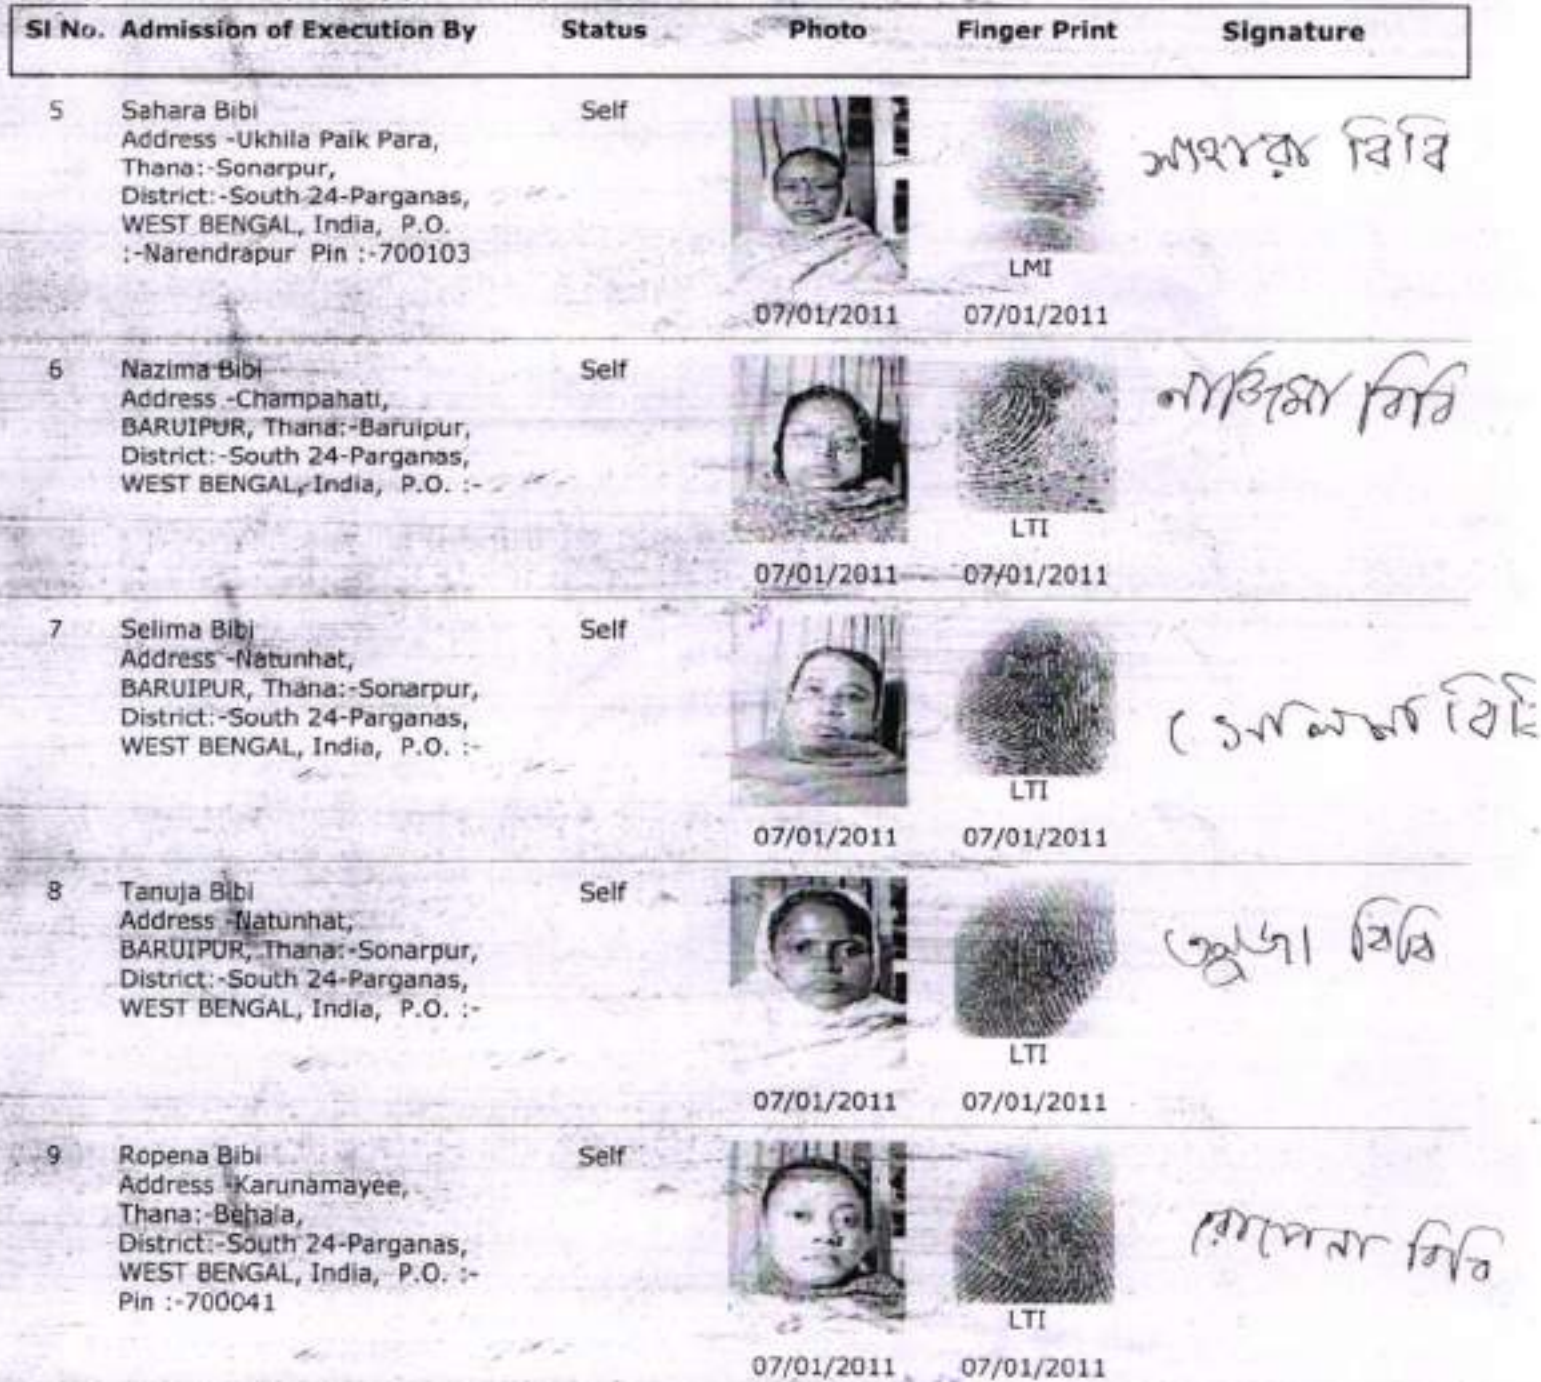 SI No. Admission of Execution By Status Photo Finger Print Signature
5 Sahara Bibi Self
Address -Ukhila Paik Para,
Thana:-Sonarpur,
District:-South 24-Parganas,
WEST BENGAL, India, P.O.
:-Narendrapur Pin :-700103
LMI
07/01/2011 07/01/2011
সাহারা বিবি
6 Nazima Bibi Self
Address -Champahati,
BARUIPUR, Thana:-Baruipur,
District:-South 24-Parganas,
WEST BENGAL, India, P.O. :-
LTI
07/01/2011 07/01/2011
নাজিমা বিবি
7 Selima Bibi Self
Address -Natunhat,
BARUIPUR, Thana:-Sonarpur,
District:-South 24-Parganas,
WEST BENGAL, India, P.O. :-
LTI
07/01/2011 07/01/2011
8 Tanuja Bibi Self
Address -Natunhat,
BARUIPUR, Thana:-Sonarpur,
District:-South 24-Parganas,
WEST BENGAL, India, P.O. :-
LTI
07/01/2011 07/01/2011
তনুজা বিবি
9 Ropena Bibi Self
Address -Karunamayee,
Thana:-Behala,
District:-South 24-Parganas,
WEST BENGAL, India, P.O. :-
Pin :-700041
LTI
07/01/2011 07/01/2011
রোপেনা বিবি